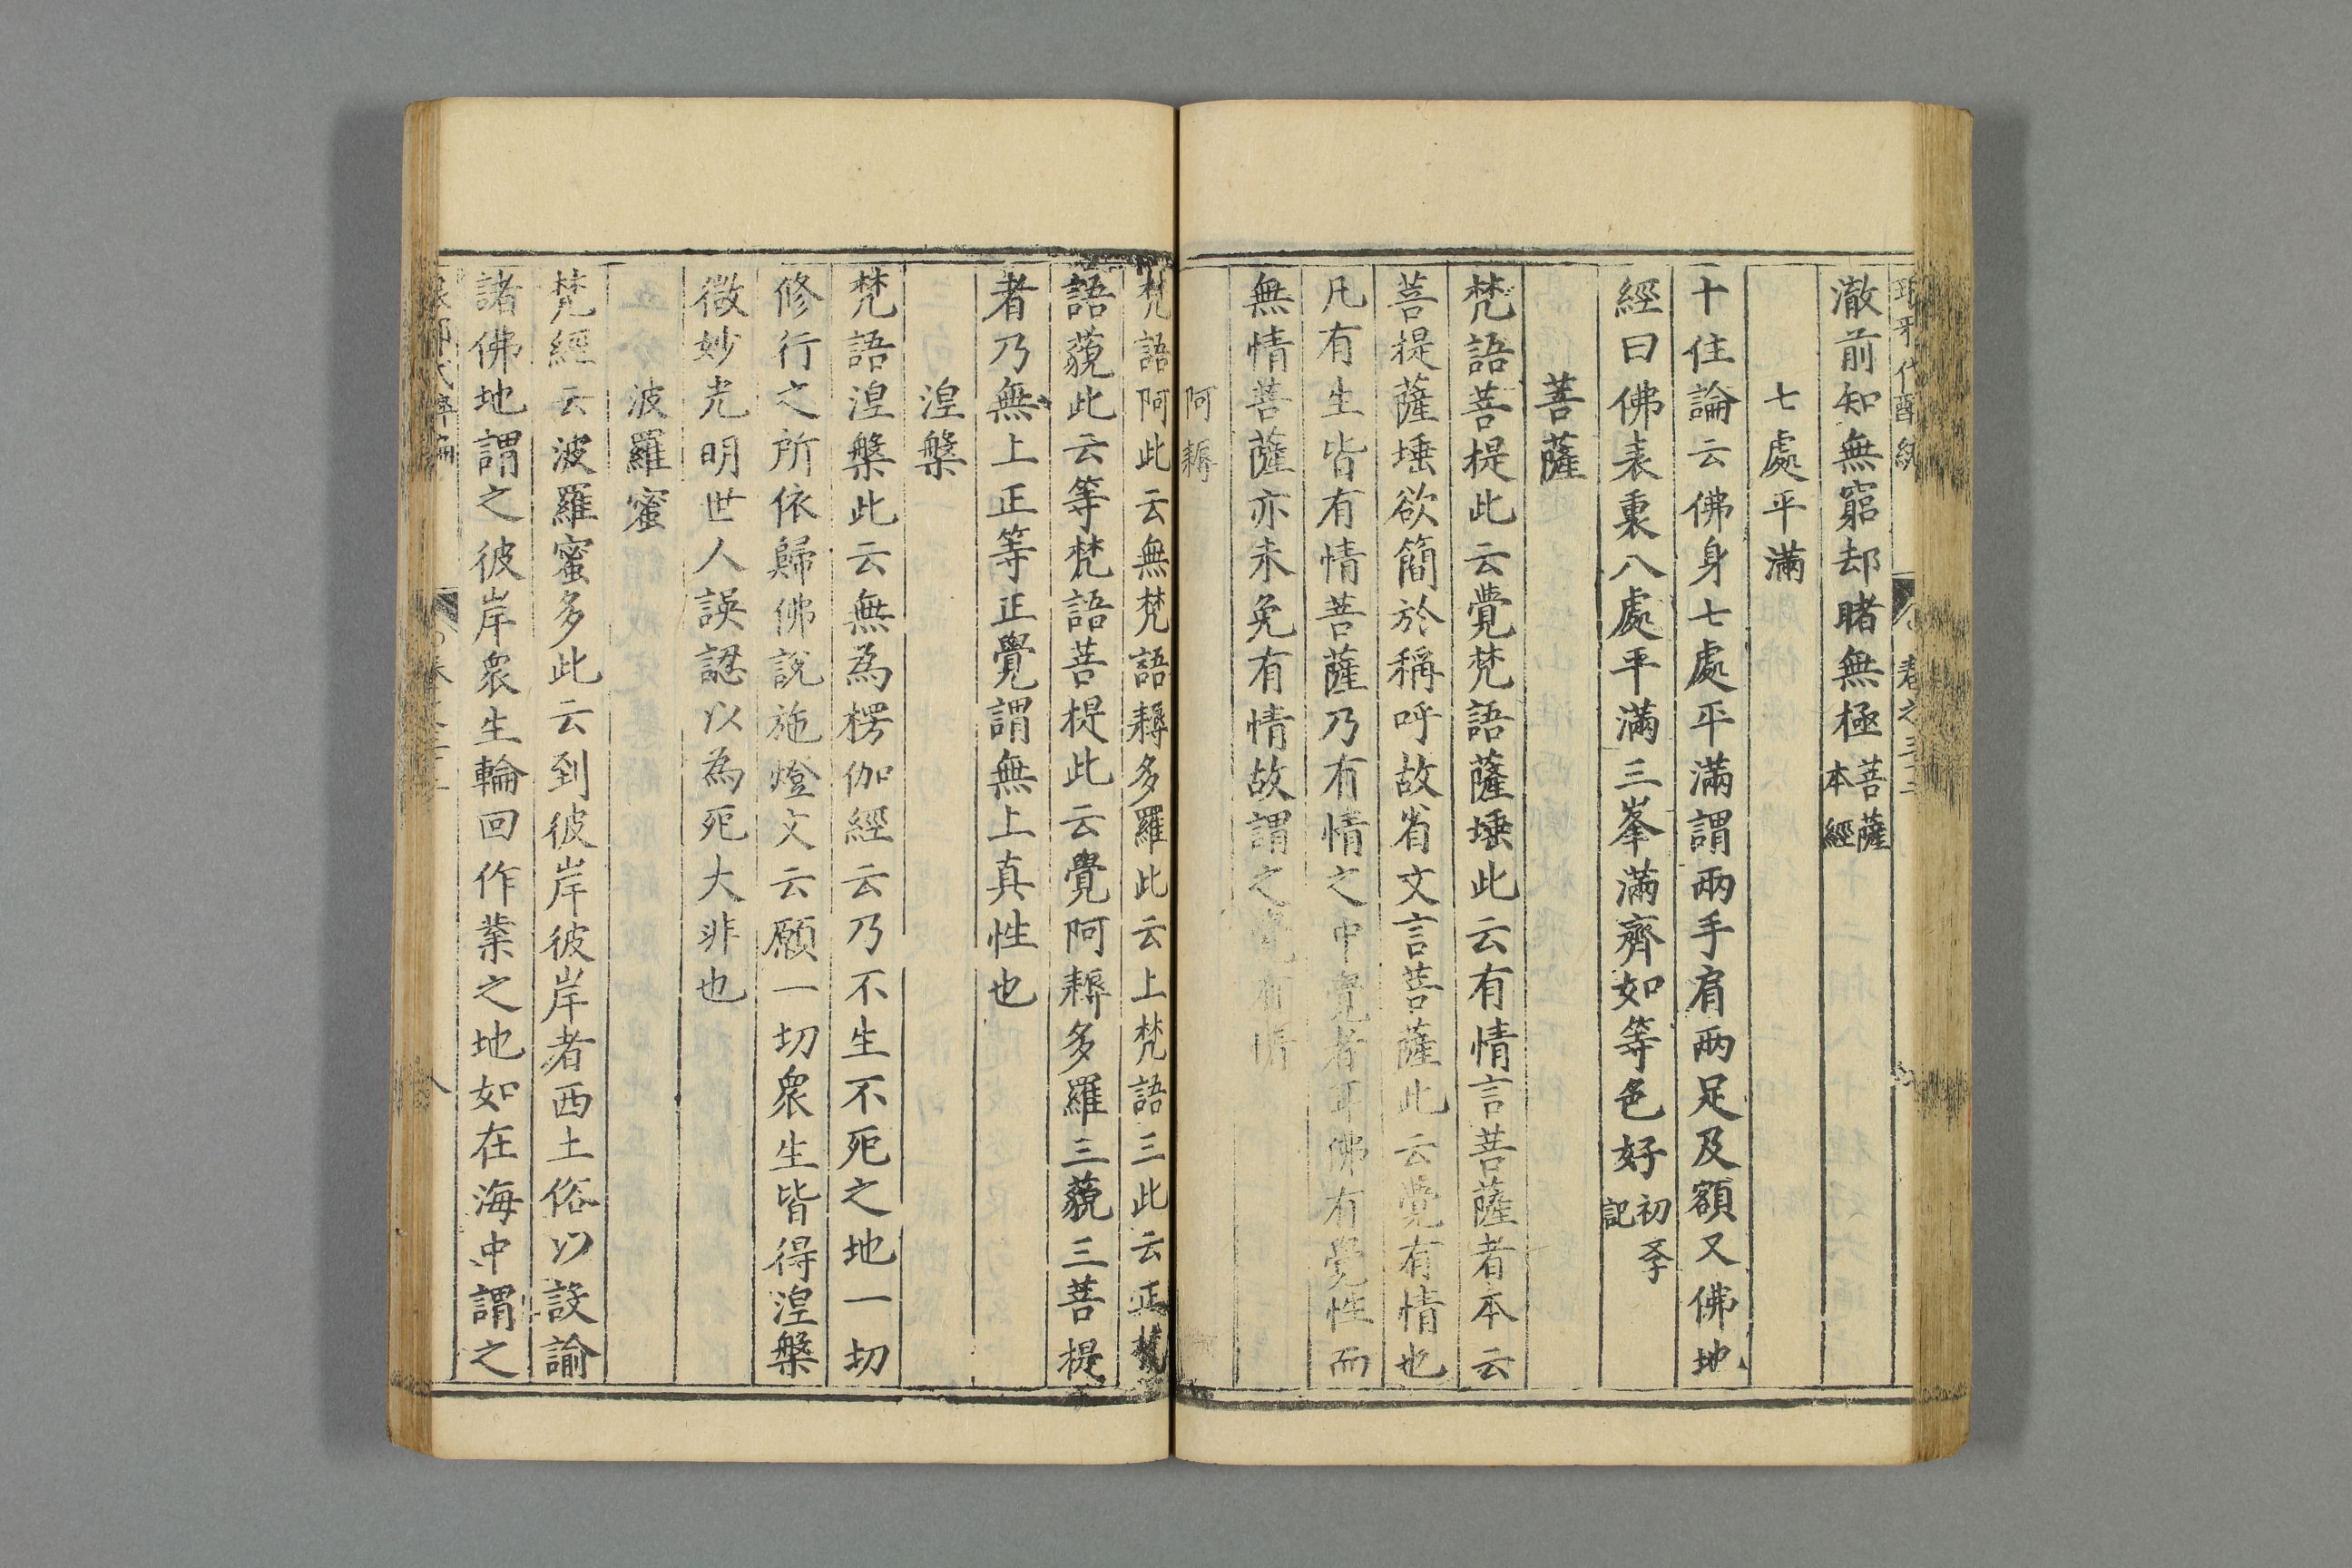 澈前知無窮却睹無極菩薩本經
七處平滿
十住論云佛身七處平滿謂兩手肩兩足及額又佛地
經曰佛表裏八處平滿三峯滿齊如等色好初學記
菩薩
梵語菩提此云覺梵語薩埵此云有情言菩薩者本云
菩提薩埵欲簡於稱呼故省文言菩薩此云覺有情也
凡有生皆有情菩薩乃有情之中覺者耳佛有覺性而
無情菩薩亦未免有情故謂之覺有情
阿耨
梵語阿此云無梵語耨多羅此云上梵語三此云正梵
語藐此云等梵語菩提此云覺阿耨多羅三藐三菩提
者乃無上正等正覺謂無上真性也
湼槃
梵語湼槃此云無為楞伽經云乃不生不死之地一切
修行之所依歸佛說施燈文云願一切衆生皆得湼槃
微妙光明世人誤認以為死大非也
波羅蜜
梵經云波羅蜜多此云到彼岸彼岸者西土俗以設諭
諸佛地謂之彼岸衆生輪回作業之地如在海中謂之